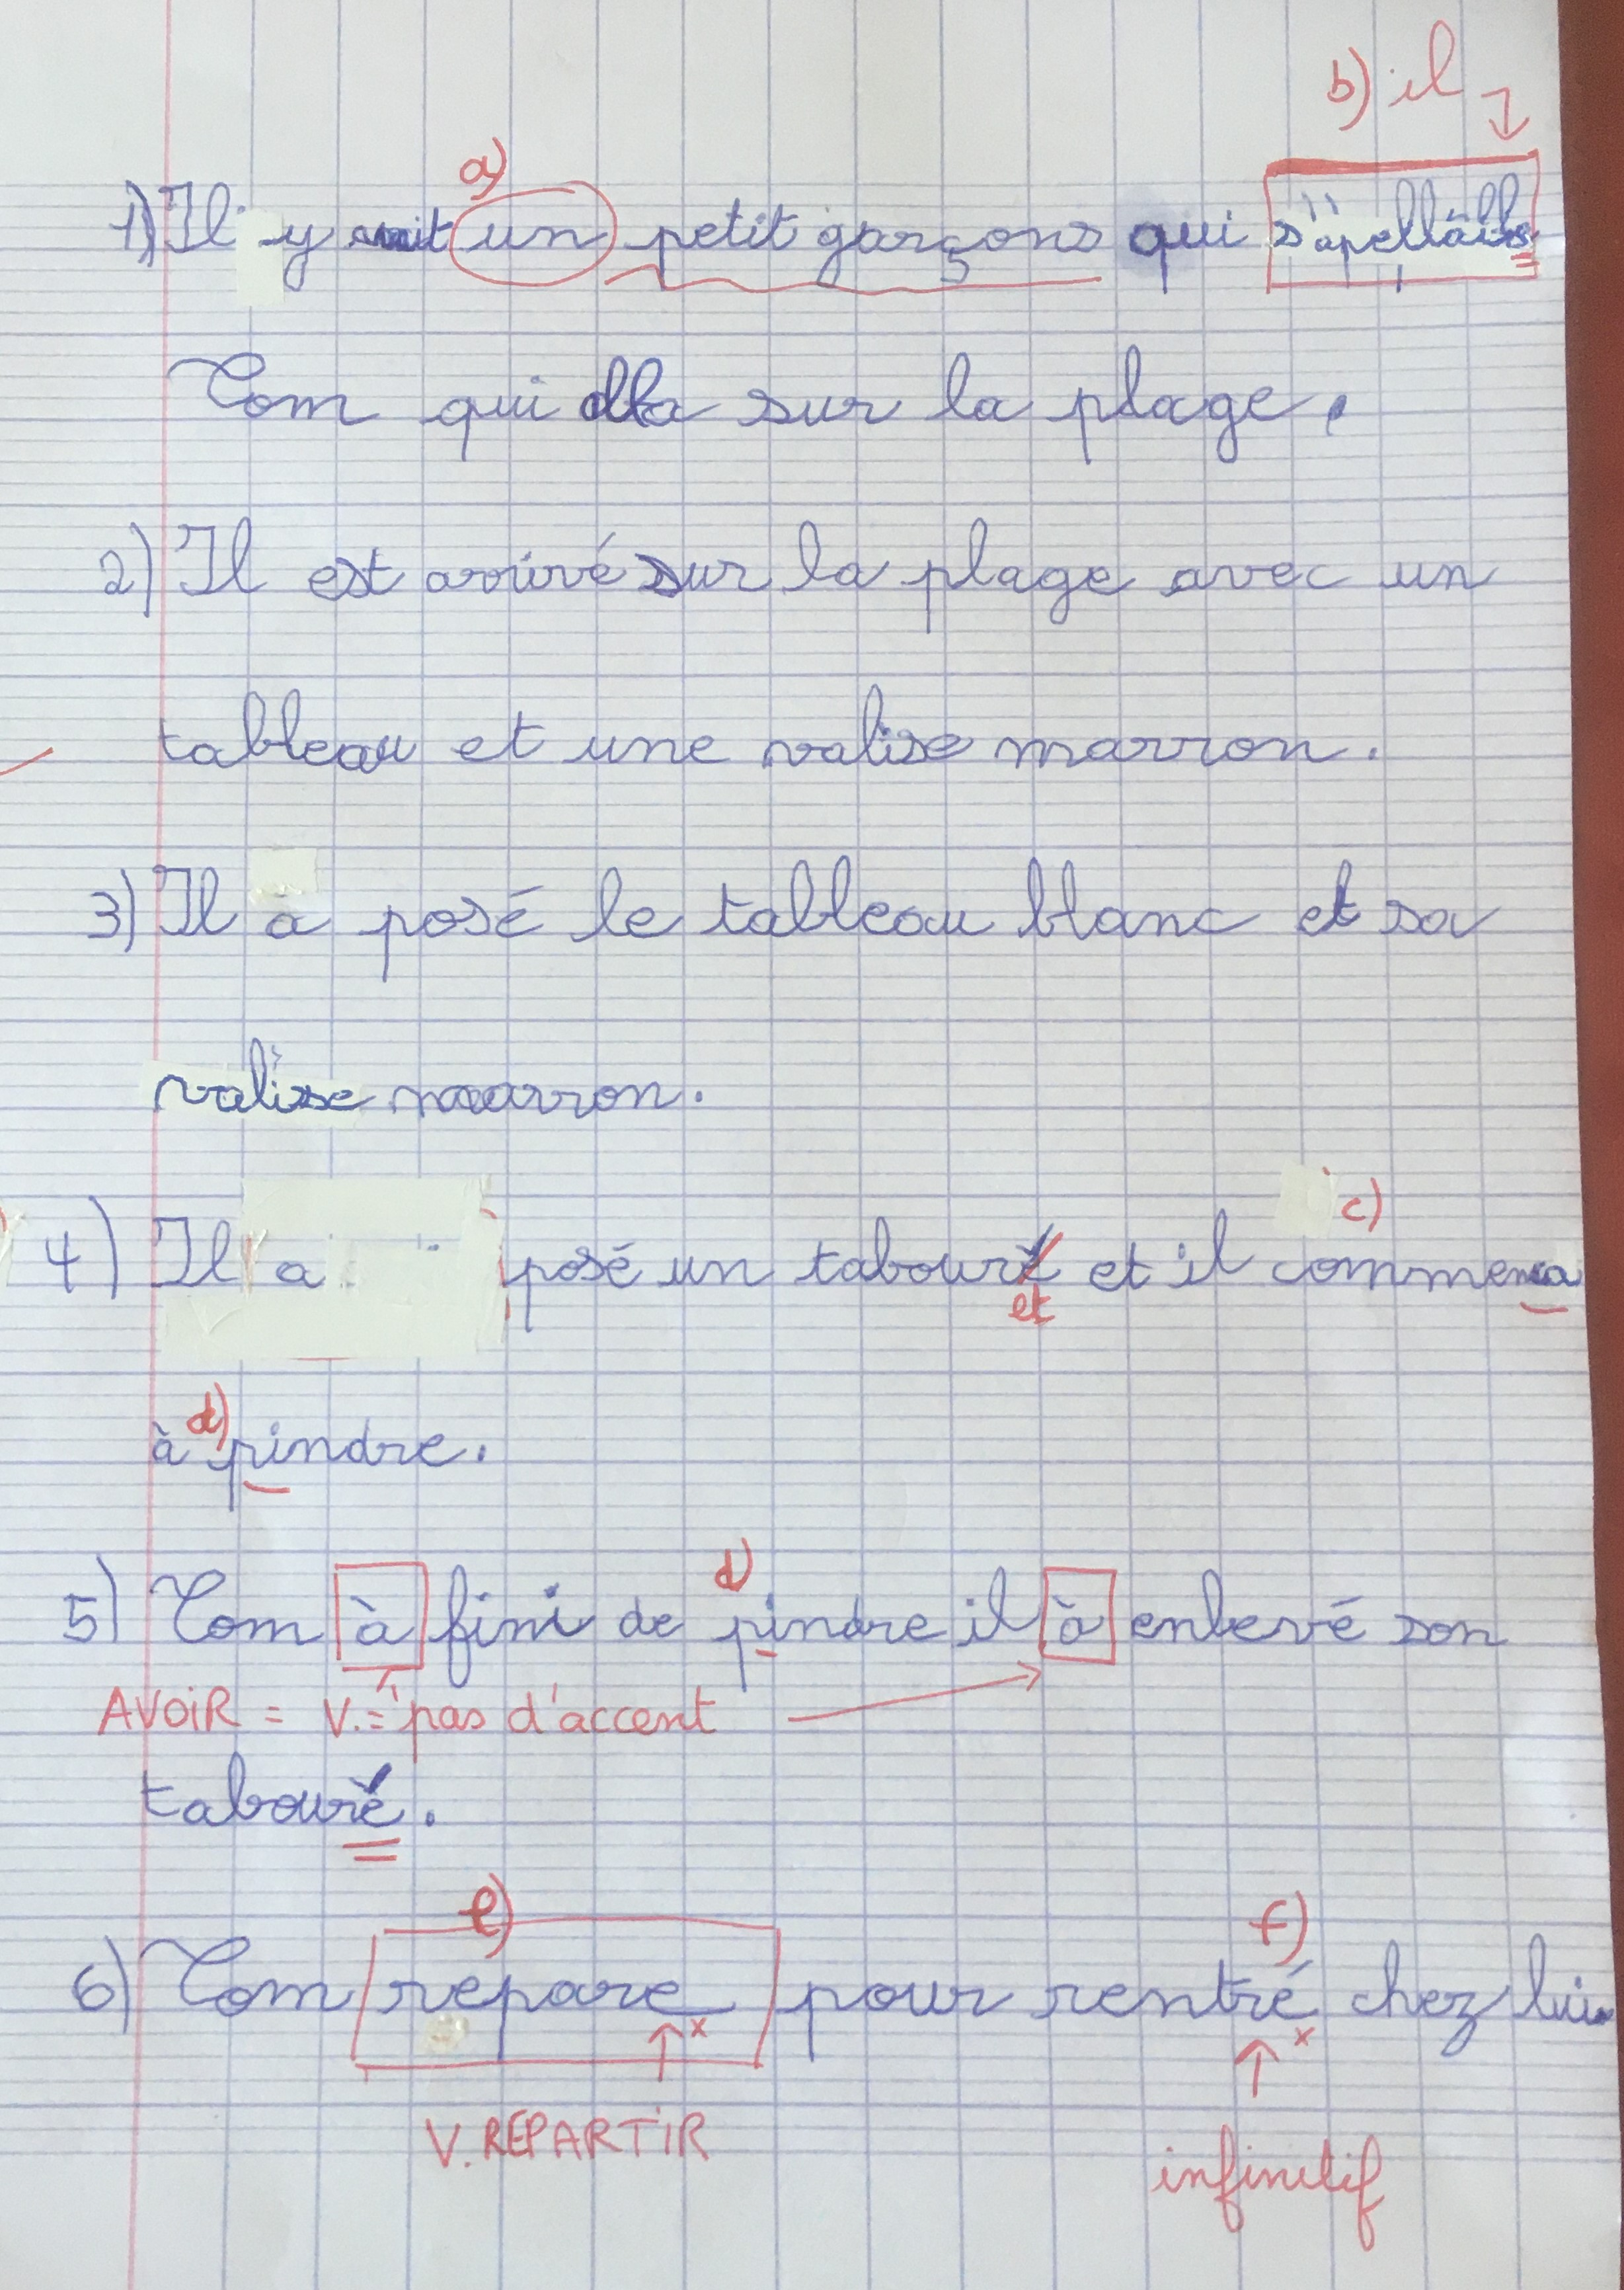 b) il
a)
1) Il y avait un petit garçons qui s'apellais
Tom qui alla sur la plage.
2) Il est arrivé sur la plage avec un
tableau et une valise marron.
3) Il a posé le tableau blanc et sa
valise marron.
c)
4) Il a posé un tabouré et il commenca
et
d)
à pindre.
d)
5) Tom à fini de pindre il à enlevé son
AVOIR = V. = pas d'accent
tabouré.
e) f)
6) Tom repare pour rentré chez lui.
x x
V. REPARTIR
infinitif